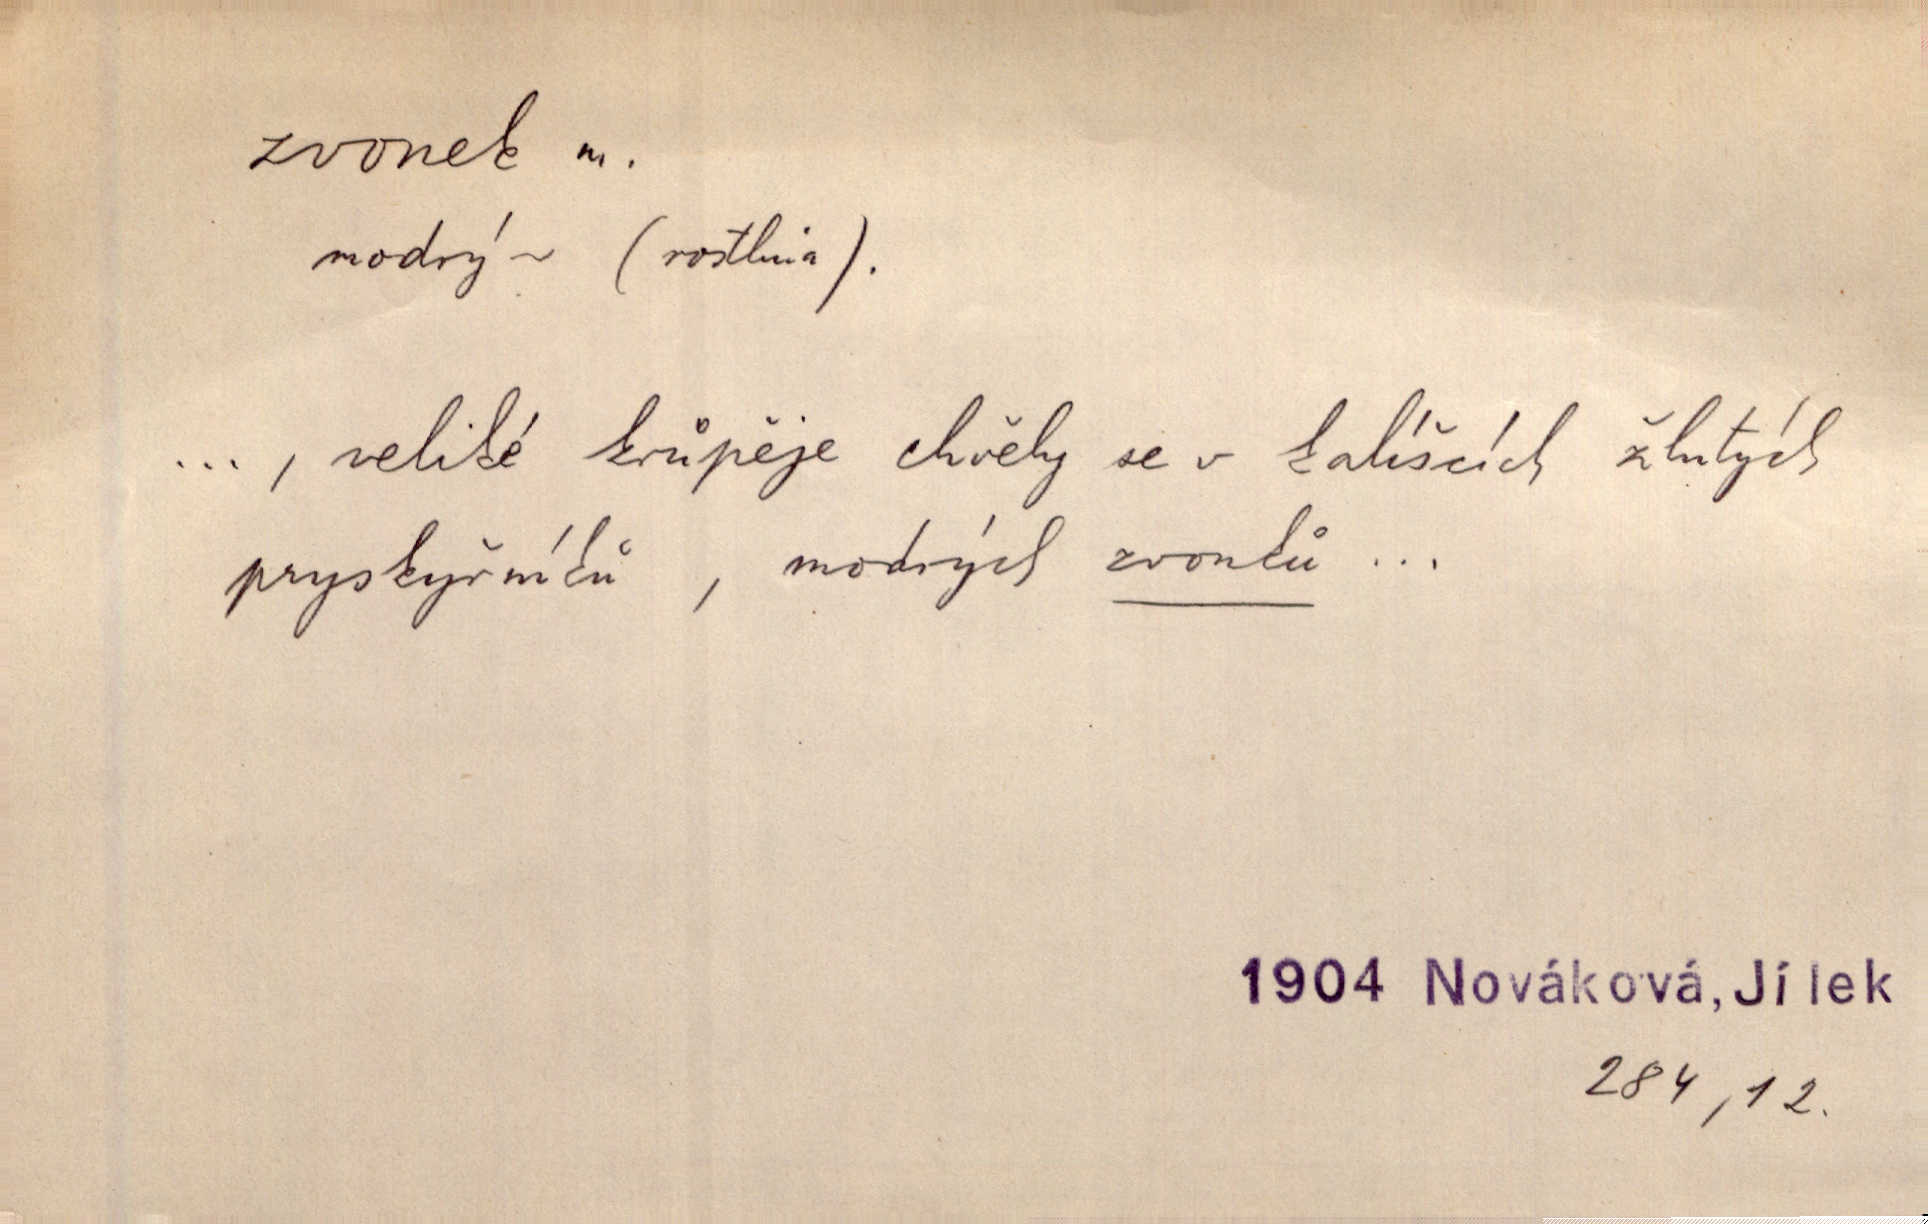 zvonek m.
modrý ~ (rostlina).
..., veliké krůpěje chvěly se v kalíšcích žlutých
pryskyřníků, modrých zvonků ...
1904 Nováková, Jílek
284, 12.